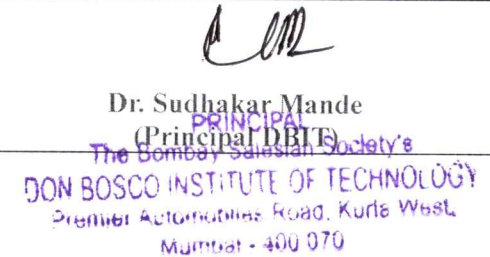 Dr. Sudhakar Mande
PRINCIPAL
(Principal DBIT)
The Bombay Salesian Society's
DON BOSCO INSTITUTE OF TECHNOLOGY
Premier Automobiles Road, Kurla West,
Mumbai - 400 070